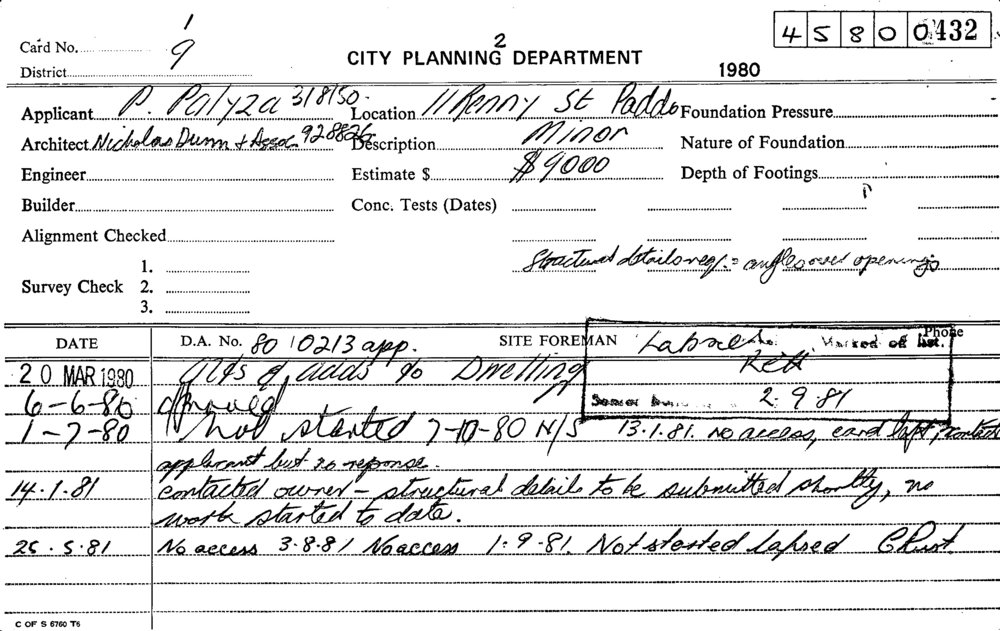 1
Card No. 9
District
2
CITY PLANNING DEPARTMENT
1980
45800432
Applicant P. Palyza 318150. Location 11 Renny St Paddo Foundation Pressure
Architect Nicholas Dunn & Assoc. 928826 Description Minor Nature of Foundation
Engineer Estimate $ $9000 Depth of Footings
Builder Conc. Tests (Dates)
Alignment Checked
Structural details req. = angles over openings
1.
Survey Check 2.
3.
DATE D.A. No. 80 0213 app. SITE FOREMAN Phone
Lapsed Marked off list.
2.9.81
20 MAR 1980 Alts & adds to Dwelling
6-6-80 Approved
1-7-80 Not started 7-10-80 N/S 13.1.81. No access, card left, contacted
applicant but no reponse.
14.1.81 contacted owner – structural details to be submitted shortly, no
work started to date.
26.5.81 No access 3.8.81 No access 1.9.81. Not started lapsed
C OF S 6760 T6